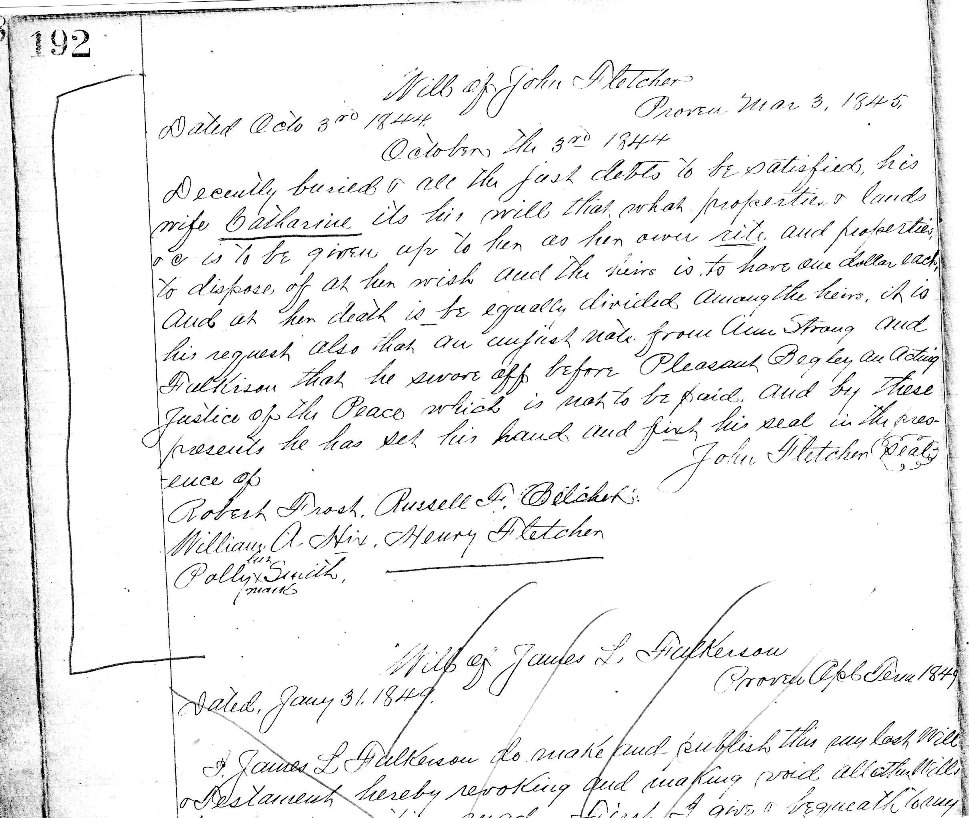 192
Will of John Fletcher
Proven Mar 3, 1845.
Dated Octo 3rd 1844
October, the 3rd 1844
Decently buried & all the just debts to be satisfied, his
wife Catharine its his will that what properties & lands
&c is to be given up to her as her own rite and properties,
to dispose of at her wish and the heirs is to have one dollar each,
and at her death is be equally divided among the heirs, it is
his request also that an unjust note from Ann Strong and
Fulkerson that he swore off before Pleasant Begley an Acting
Justice of the Peace which is not to be paid. and by these
presents he has set his hand and fixt his seal in the pres-
ence of
John Fletcher (Seal)
Robert Frost, Russell F. Belcher.
William A. Hix, Henry Fletcher
her
Polly x Smith,
mark
Will of James L. Fulkerson
Proven Apl Term 1849
Dated, Jany 31. 1849.
I. James L Fulkerson do make and publish this my last Will
& Testament hereby revoking and making void all other Wills
First I give & bequeath to my